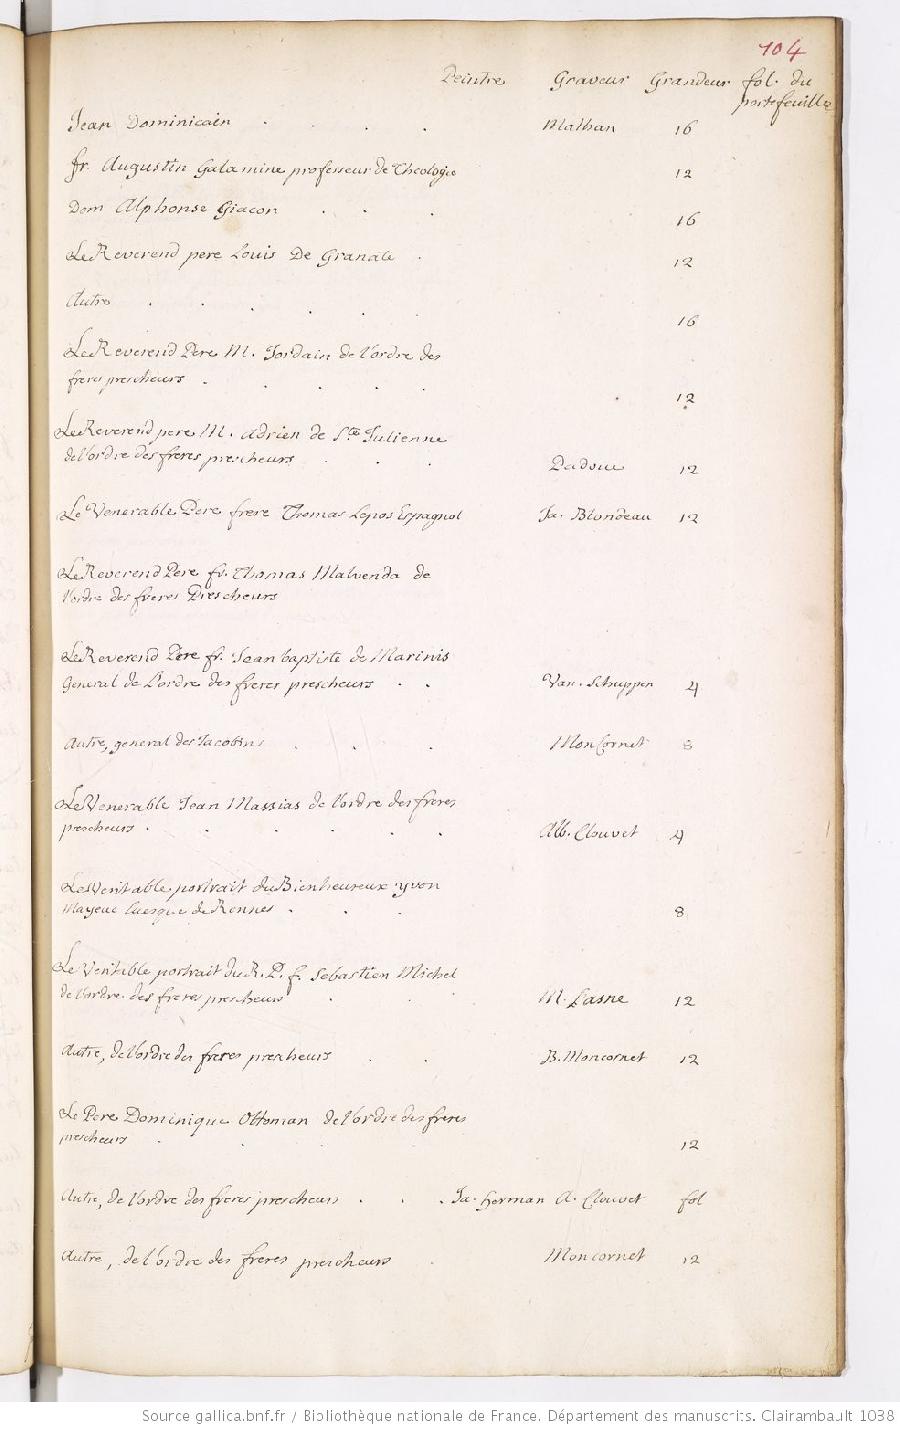 104
Peintre Graveur Grandeur fol. du
portefeuille
Jean Dominicain . . . . Mathan 16
fr. Augustin Galamine professeur de Theologie 12
Dom Alphonse Giacon . . . 16
Le Reverend pere Louis De Granate . 12
Autre . . . . . 16
Le Reverend Pere M. Jordain de l'ordre des
freres prescheurs . . . . . 12
Le Reverend pere M. Adrien de Ste Julienne
de l'ordre des freres prescheurs . . . Padoue 12
Le Venerable Pere frere Thomas Lepos Espagnol Ja. Blondeau 12
Le Reverend Pere fr. Thomas Malvenda de
l'ordre des freres Prescheurs
Le Reverend Pere fr. Jean baptiste de Marinis
General de l'ordre des freres prescheurs . . Van. Schuppen 4
Autre, general des Jacobins . . . Moncornet 8
Le Venerable Jean Massias de l'ordre des freres
prescheurs . . . . . Alb. Clouvet 4
Le Veritable portrait du Bienheureux yvon
Mayeuc Evesque de Rennes . . . 8
Le Veritble portrait du R. P. f. Sebastien Michel
de l'ordre des freres prescheurs . . . M. Lasne 12
Autre, de l'ordre des freres prescheurs . . B. Moncornet 12
Le Pere Dominique Ottoman de l'ordre des freres
prescheurs . . . . 12
Autre, de l'ordre des freres prescheurs . . . Ja. herman A. Clouvet fol
Autre, de l'ordre des freres prescheurs . Moncornet 12
Source gallica.bnf.fr / Bibliothèque nationale de France. Département des manuscrits. Clairambault 1038